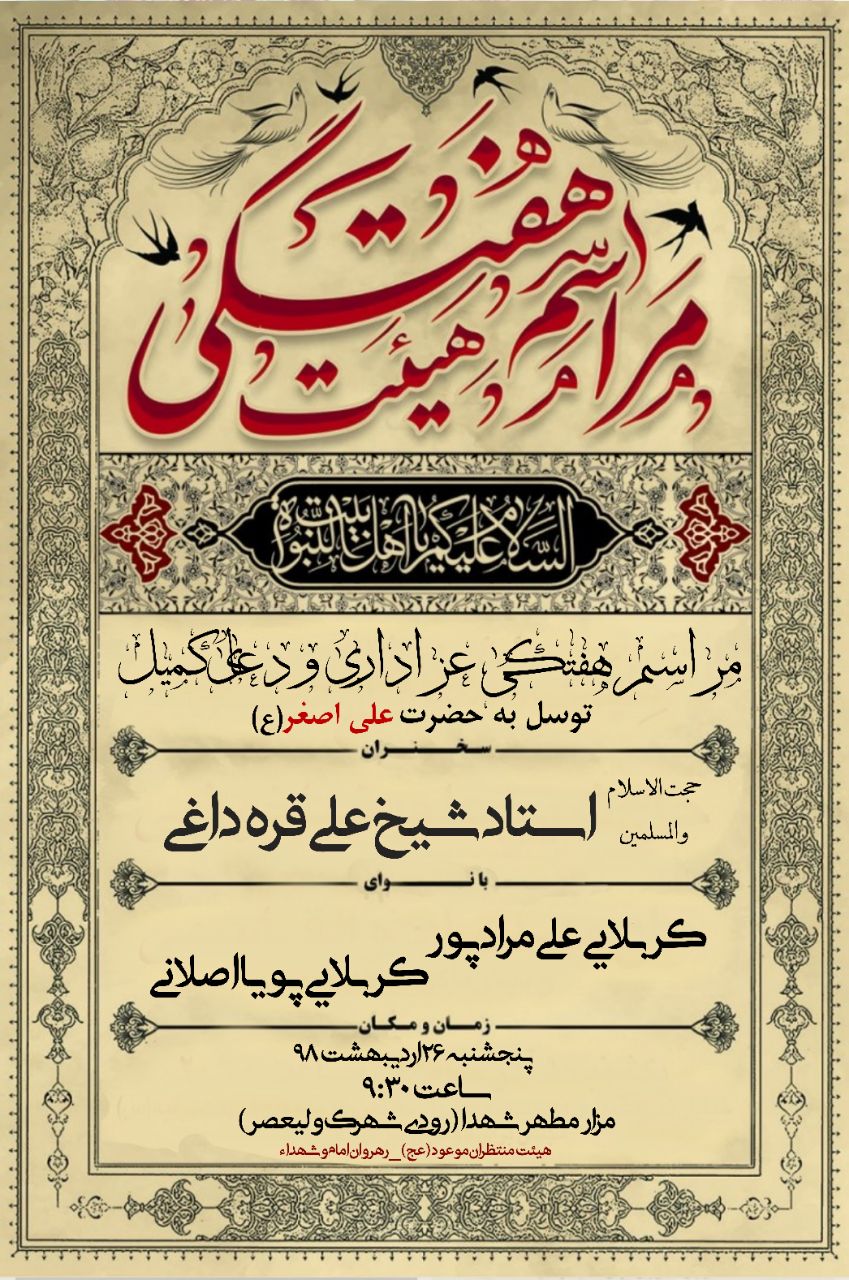 مراسم هفتگی
هیئت
السلام علیکم یا اهل بیت النبوة
مراسم هفتگی عزاداری و دعای کمیل
توسل به حضرت علی اصغر(ع)
سخنران
حجت الاسلام والمسلمین
استاد شیخ علی قره داغی
با نوای
کربلایی علی مرادپور
کربلایی پویا اصلانی
زمان و مکان
پنجشنبه ۲۶ اردیبهشت ۹۸
ساعت ۹:۳۰
مزار مطهر شهدا (رودی شهرک ولیعصر)
هیئت منتظران موعود(عج)_رهروان امام و شهداء